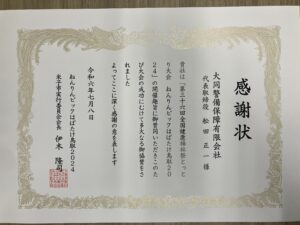 感謝状
大同警備保障有限会社
代表取締役 松田 正一 様
貴社は「第三十六回全国健康福祉祭とっと
り大会 ねんりんピックはばたけ鳥取20
24」の開催趣旨に御賛同いただきこのた
び大会の成功にむけて多大なる御協賛をさ
れました
よってここに深く感謝の意を表します
令和六年七月八日
ねんりんピックはばたけ鳥取2024
米子市実行委員会会長 伊木 隆司